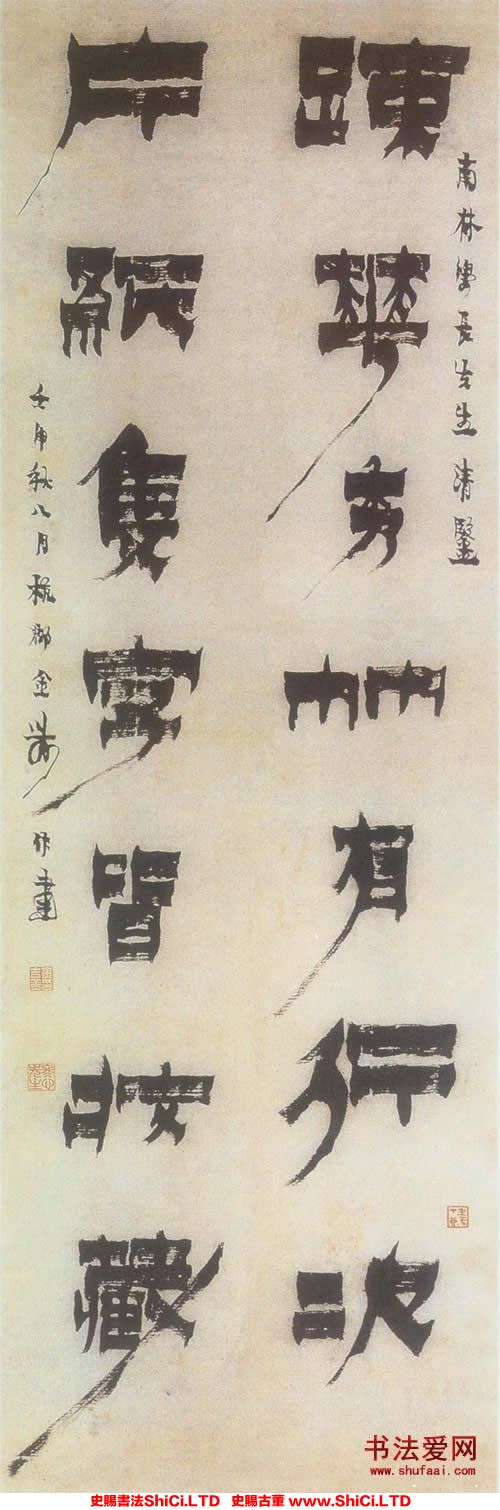 南林學長先生清鑒
踈華秀竹有行次
片紙隻字皆收藏
壬申秋八月杭郡金農作書
书法爱网
www.shufaai.com
史赐書法ShiCi.LTD 史赐古董 www.ShiCi.LTD